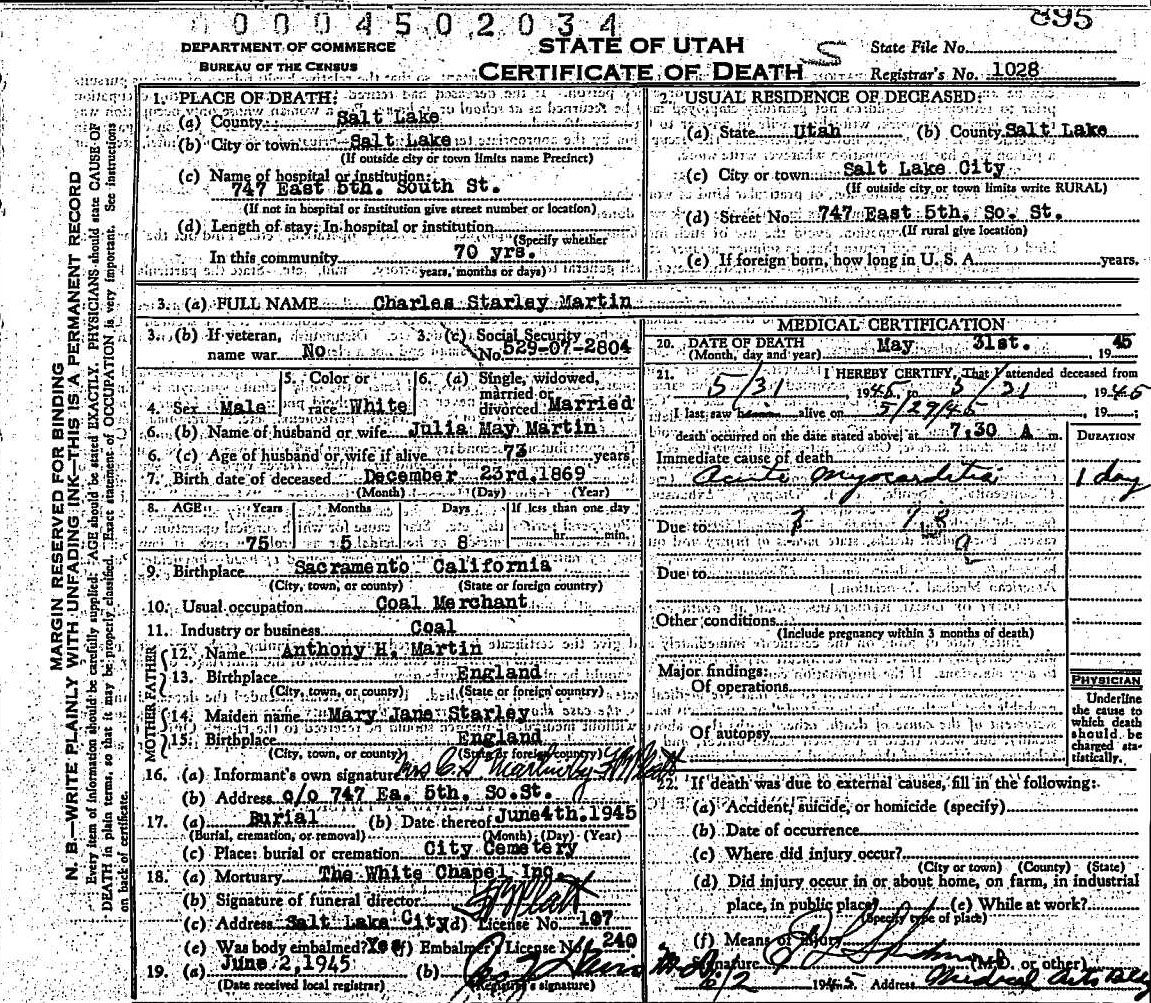 0 0 0 4 5 0 2 0 3 4
895
DEPARTMENT OF COMMERCE
BUREAU OF THE CENSUS
STATE OF UTAH
CERTIFICATE OF DEATH
S
State File No.
Registrar's No. 1028
MARGIN RESERVED FOR BINDING
N. B.—WRITE PLAINLY WITH UNFADING INK—THIS IS A PERMANENT RECORD
Every item of information should be carefully supplied. AGE should be stated EXACTLY. PHYSICIANS should state CAUSE OF
DEATH in plain terms, so that it may be properly classified. Exact statement of OCCUPATION is very important. See instructions
on back of certificate.
1. PLACE OF DEATH:
(a) County Salt Lake
(b) City or town Salt Lake
(If outside city or town limits name Precinct)
(c) Name of hospital or institution:
747 East 5th. South St.
(If not in hospital or institution give street number or location)
(d) Length of stay: In hospital or institution
(Specify whether
In this community 70 yrs.
years, months or days)
2. USUAL RESIDENCE OF DECEASED:
(a) State Utah (b) County Salt Lake
(c) City or town Salt Lake City
(If outside city or town limits write RURAL)
(d) Street No. 747 East 5th. So. St.
(If rural give location)
(e) If foreign born, how long in U. S. A. years.
3. (a) FULL NAME Charles Starley Martin
3. (b) If veteran,
name war No
3. (c) Social Security
No. 529-07-2804
4. Sex Male
5. Color or
race White
6. (a) Single, widowed,
married or
divorced Married
6. (b) Name of husband or wife Julia May Martin
6. (c) Age of husband or wife if alive 73 years
7. Birth date of deceased December 23rd.1869
(Month) (Day) (Year)
8. AGE Years Months Days If less than one day
75 5 8 hr. min.
9. Birthplace Sacramento California
(City, town, or county) (State or foreign country)
10. Usual occupation Coal Merchant
11. Industry or business Coal
FATHER
12. Name Anthony H. Martin
13. Birthplace England
(City, town, or county) (State or foreign country)
MOTHER
14. Maiden name Mary Jane Starley
15. Birthplace England
(City, town, or county) (State or foreign country)
16. (a) Informant's own signature Mrs C.S. Martin by
(b) Address c/o 747 Ea. 5th. So.St.
17. (a) Burial (b) Date thereof June4th.1945
(Burial, cremation, or removal) (Month) (Day) (Year)
(c) Place: burial or cremation City Cemetery
18. (a) Mortuary The White Chapel Inc.
(b) Signature of funeral director
(c) Address Salt Lake City (d) License No. 107
(e) Was body embalmed? Yes (f) Embalmer License No. 240
19. (a) June 2,1945 (b)
(Date received local registrar) (Registrar's signature)
MEDICAL CERTIFICATION
20. DATE OF DEATH May 31st. , 19 45
(Month, day and year)
21. I HEREBY CERTIFY, That I attended deceased from
5/31 1945 to 5/31 , 1945
I last saw him alive on 5/29/45 , 19 ;
death occurred on the date stated above, at 7.30 A m.
DURATION
Immediate cause of death
Acute Myocarditis 1 day
Due to
Due to
Other conditions
(Include pregnancy within 3 months of death)
Major findings:
Of operations
Of autopsy
PHYSICIAN
Underline
the cause to
which death
should be
charged sta-
tistically.
22. If death was due to external causes, fill in the following:
(a) Accident, suicide, or homicide (specify)
(b) Date of occurrence
(c) Where did injury occur?
(City or town) (County) (State)
(d) Did injury occur in or about home, on farm, in industrial
place, in public place? (e) While at work?
(Specify type of place)
(f) Means of injury
Signature (M.D. or other)
6/2 1945 Address Medical Arts Bldg